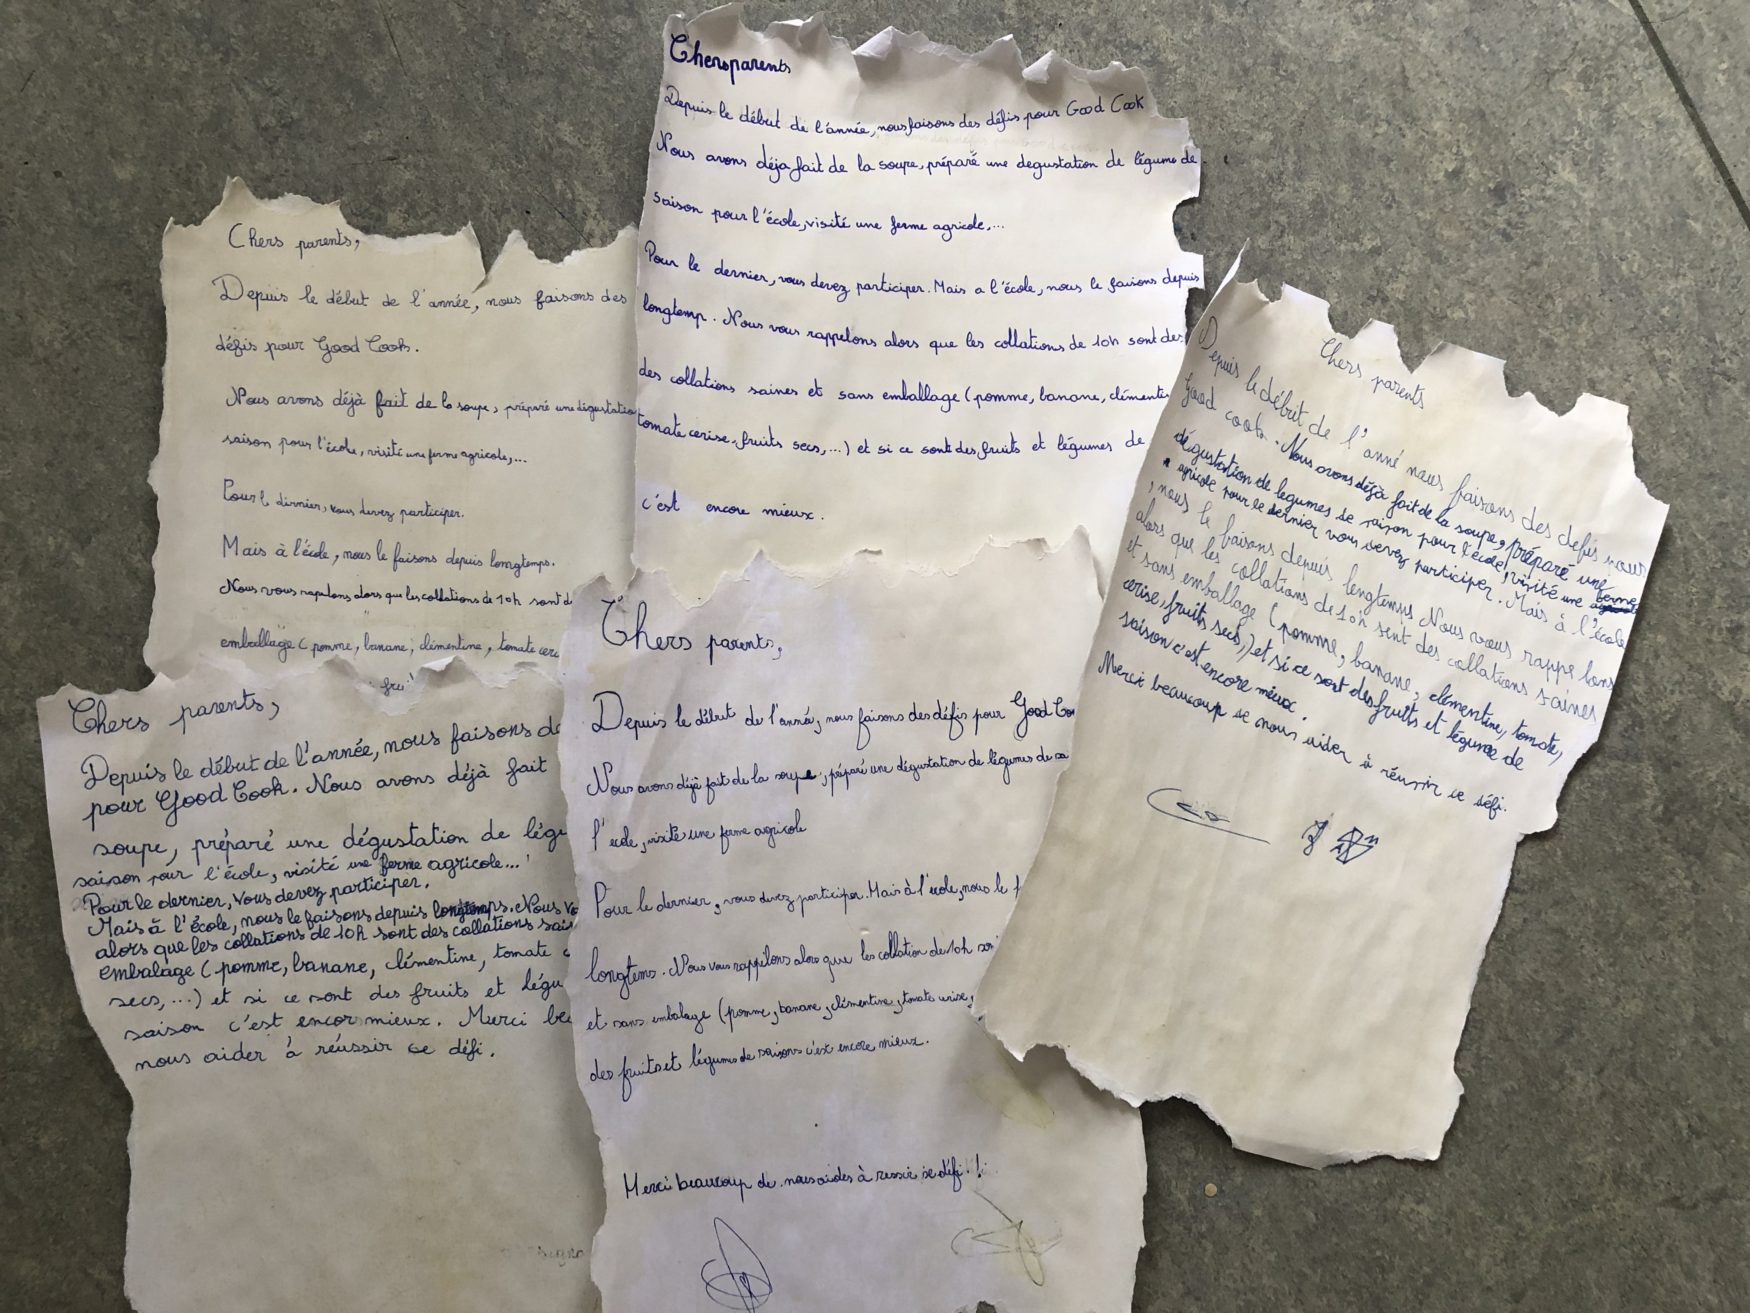 Chers parents
Depuis le début de l'année, nous faisons des défis pour Good Cook
Nous avons déja fait de la soupe, préparé une degustation de légume de
saison pour l'école, visité une ferme agricole,...
Pour le dernier, vous devez participer. Mais a l'école, nous le faisons depuis
longtemp. Nous vous rappelons alors que les collations de 10h sont des
des collations saines et sans emballage (pomme, banane, clémenti
tomate cerise, fruits secs,...) et si ce sont des fruits et légumes de
c'est encore mieux.
Chers parents,
Depuis le début de l'année, nous faisons des
défis pour Good Cook.
Nous avons déjà fait de la soupe, préparé une dégustation
saison pour l'école, visité une ferme agricole,...
Pour le dirnier, vous devez participer.
Mais à l'école, nous le faisons depuis longtemps.
Nous vous rapelons alors que les collations de 10h sont d
emballage (pomme, banane, clémentine, tomate ceri
frui
Chers parents,
Depuis le début de l'année, nous faisons de
pour Good Cook. Nous avons déjà fait
soupe, préparé une dégustation de légu
saison pour l'école, visité une ferme agricole...
Pour le dernier, Vous devez participer.
Mais à l'école, nous le faisons depuis longtemps. Nous vo
alors que les collations de 10h sont des collations sai
embalage (pomme, banane, clémentine, tomate c
secs,...) et si ce sont des fruits et légu
saison c'est encor mieux. Merci be
nous aider à réussir ce défi.
Signa
Chers parents,
Depuis le début de l'année, nous faisons des défis pour Good Coo
Nous avons déjà fait de la soupe, préparé une dégustation de légumes de sa
l'ecole, visité une ferme agricole
Pour le dernier, vous devez participer. Mais à l'école, nous le f
longtems. Nous vous rappelons alors que les collation de 10h son
et sans embalage (pomme, banane, clémentine, tomate cerise,
des fruits et légumes de saisons c'est encore mieux.
Merci beaucoup de nous aides à réssir se défi.!
Chers parents
Depuis le début de l'anné nous faisons des defis pour
good cook. Nous avons déjà fait de la soupe, préparé une
dégustation de legumes de saison pour l'école, visité une ferme
agricole pour le dernier vous devez participer. Mais à l'école
, nous le faisons depuis longtemps Nous vous rappelons
alors que les collations de 10h sont des collations saines
et sans emballage (pomme, banane, clémentine, tomate,
cerise, fruits secs,) et si ce sont des fruits et légume de
saison c'est encore mieux.
Merci beaucoup de nous aider à réussir ce défi.